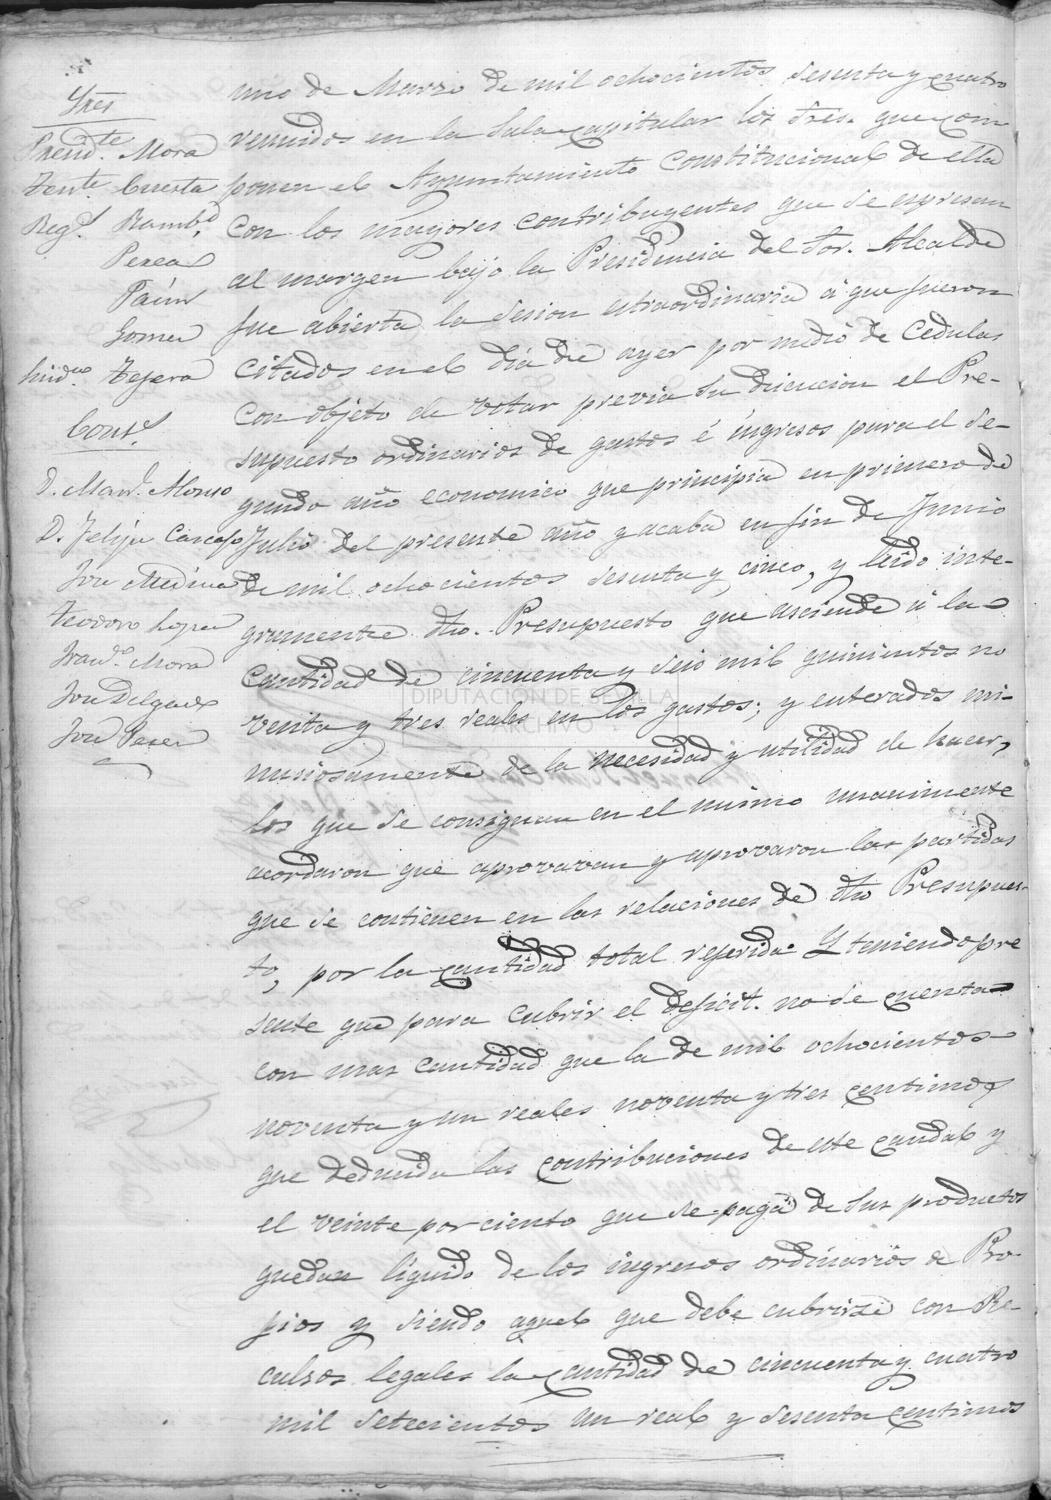 Sres
Presid.te Mora
Tente Cuesta
Reg.s Ramb.d
Perea
Paún
Gomez
Sindco Tejera
Cont.s
D. Man.l Alonso
D. Felipe Carcaso
José Medina
Teodoro Lopez
Fran.co Mora
José Delgado
José Perea
uno de Marzo de mil ochocientos sesenta y cuatro
reunidos en la Sala capitular los Sres. que com
ponen el Ayuntamiento constitucional de ella
con los mayores contribuyentes que se espresan
al margen bajo la Presidencia del Sor. Alcalde
fue abierta la sesion estraordinaria á que fueron
citados en el dia de ayer por medio de cedulas
con objeto de votar previa su discucion el Pre-
supuesto ordinarios de gastos é ingresos para el se-
gundo año economico que principia en primero de
Julio del presente año y acaba en fin de Junio
de mil ochocientos sesenta y cinco, y leido inte-
gramente dho. Presupuesto que asciende á la
cantidad de cincuenta y seis mil quinientos no
venta y tres reales en los gastos; y enterados mi-
nusiosamente de la necesidad y utilidad de hacer
los que se consignan en el mismo unanimente
acordaron que aprovavan y aprovaron las partidas
que se contienen en las relaciones de dho Presupues-
to, por la cantidad total referida. Y teniendo pre
sente que para cubrir el deficit. no se cuenta
con mas cantidad que la de mil ochocientos
noventa y un reales noventa y tres centimos
que deducida las contribuciones de este caudal y
el veinte por ciento que se paga de sus productos
quedan líquido de los ingresos ordinarios de Pro-
pios y siendo aquel que debe cubrirse con Re-
culsos legales la cantidad de cincuenta y cuatro
mil setecientos un real y sesenta centimos
DIPUTACIÓN DE SEVILLA
ARCHIVO